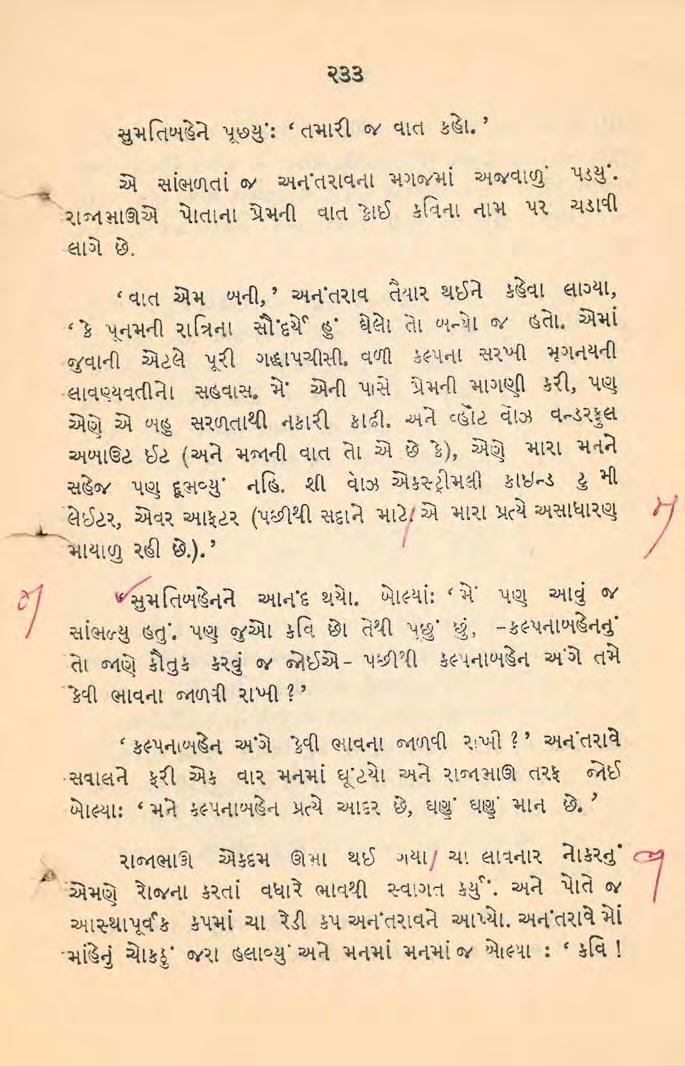 ૨૩૩
સુમતિબહેને પૂછ્યું: ‘તમારી જ વાત કહો.’
એ સાંભળતાં જ અનંતરાવના મગજમાં અજવાળું પડયું.
રાજાભાઊએ પોતાના પ્રેમની વાત કોઈ કવિના નામ પર ચડાવી
લાગે છે.
‘વાત એમ બની,’ અનંતરાવ તૈયાર થઈને કહેવા લાગ્યા,
‘કે પૂનમની રાત્રિના સૌંદર્યે હું ઘેલો તો બન્યો જ હતો. એમાં
જુવાની એટલે પૂરી ગદ્ધાપચીસી. વળી કલ્પના સરખી મૃગનયની
લાવણ્યવતીનો સહવાસ. મેં એની પાસે પ્રેમની માગણી કરી, પણ
એણે એ બહુ સરળતાથી નકારી કાઢી. અને વ્હૉટ વૉઝ વન્ડરફુલ
અબાઉટ ઈટ (અને મજાની વાત તો એ છે કે), એણે મારા મનને
સહેજ પણ દૂભવ્યું નહિ. શી વૉઝ એકસ્ટ્રીમલી કાઇન્ડ ટુ મી
લેઈટર, એવર આફ્ટર (પછીથી સદાને માટે એ મારા પ્રત્યે અસાધારણ
માયાળુ રહી છે.).’
‘સુમતિબહેનને આનંદ થયો. બોલ્યાં: ‘મેં પણ આવું જ
સાંભળ્યુ હતું. પણ જુઓ કવિ છો તેથી પૂછું છું, –કલ્પનાબહેનનું
તો જાણે કૌતુક કરવું જ જોઈએ– પછીથી કલ્પનાબહેન અંગે તમે
કેવી ભાવના જાળવી રાખી ?’
‘કલ્પનાબહેન અંગે કેવી ભાવના જાળવી રાખી ?’ અનંતરાવે
સવાલને ફરી એક વાર મનમાં ઘૂંટયો અને રાજાભાઊ તરફ જોઈ
બોલ્યા: ‘મને કલ્પનાબહેન પ્રત્યે આદર છે, ઘણું ઘણું માન છે.’
રાજાભાઊ એકદમ ઊભા થઈ ગયા ચા લાવનાર નોકરનું
એમણે રોજના કરતાં વધારે ભાવથી સ્વાગત કર્યું. અને પોતે જ
આસ્થાપૂર્વક કપમાં ચા રેડી કપ અનંતરાવને આપ્યો. અનંતરાવે મોં
માંહેનું ચોકઠું જરા હલાવ્યું અને મનમાં મનમાં જ બોલ્યા : ‘કવિ !